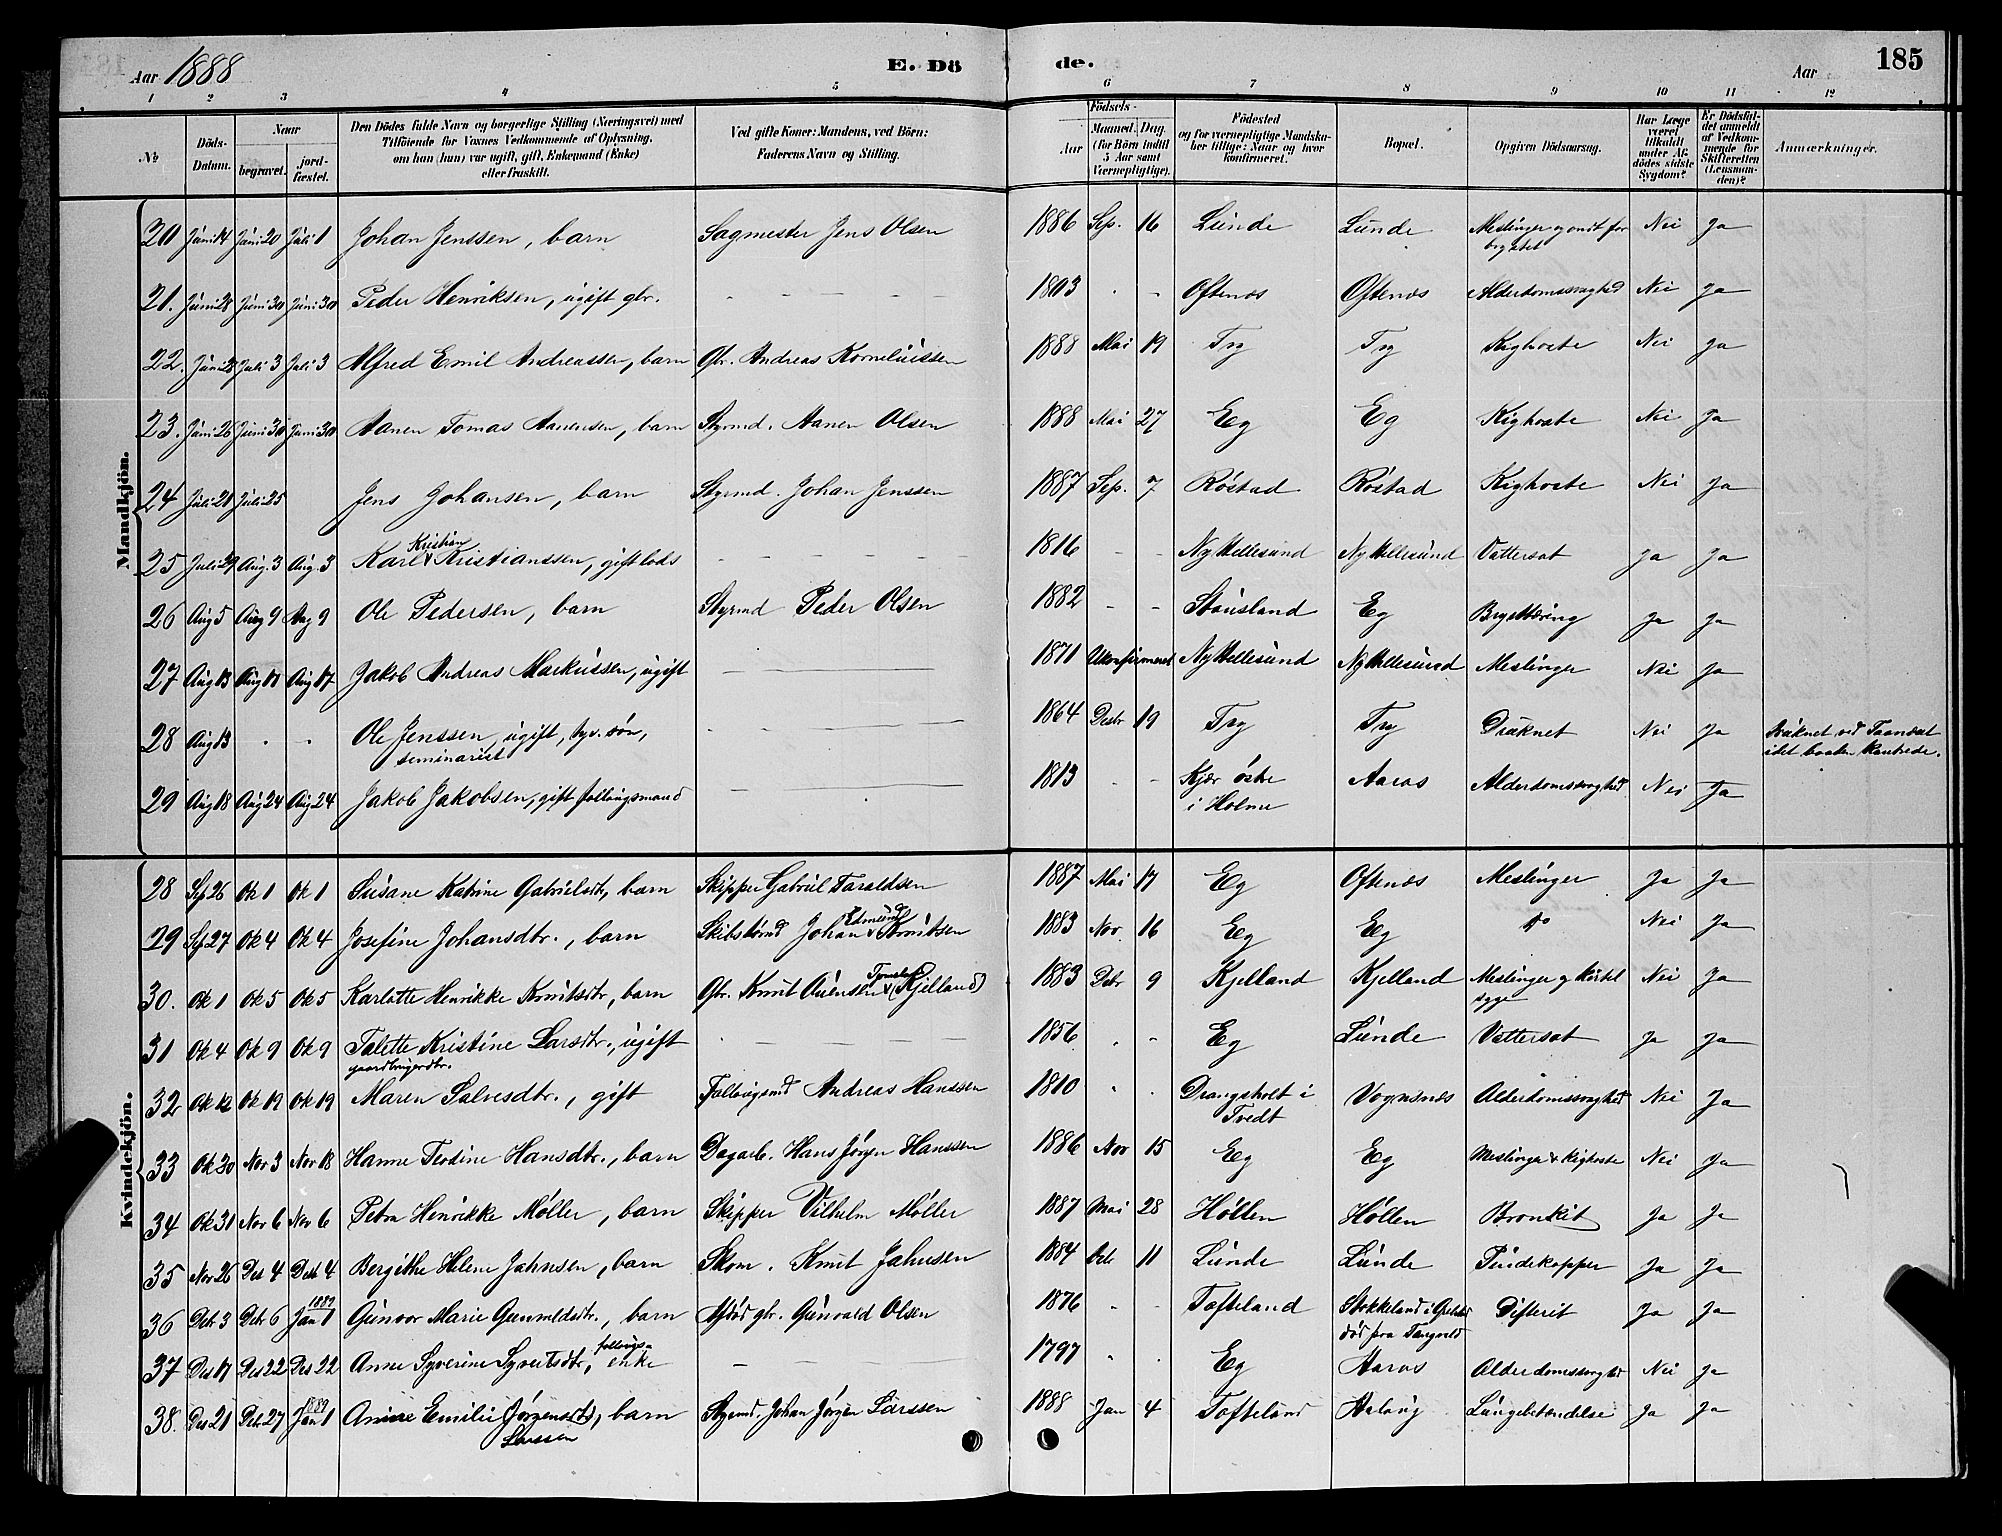 Aar 1888 E. Dö de. Aar 185
1 2 3 4 5 6 7 8 9 10 11 12
№ Döds-Datum. Naar begravet. jord-fæstet. Den Dödes fulde Navn og borgerlige Stilling (Næringsvei) med Tilföiende for Voxnes Vedkommende af Oplysning, om han (hun) var ugift, gift, Enkemand (Enke) eller fraskilt. Ved gifte Koner: Mandens, ved Börn: Faderens Navn og Stilling. Födsels- Aar Maaned. Dag. (for Börn indtil 5 Aar samt Værnepligtige). Födested og for værnepligtige Mandskaber tillige: Naar og hvor konfirmeret. Bopæl. Opgiven Dödsaarsag. Har Læge været tilkaldt under Afdödes sidste Sygdom? Er Dödsfaldet anmeldt af Vedkommende for Skifteretten (Lensmanden)? Anmærkninger.
Mandkjön.
20 Juni 14 Juni 20 Juli 1 Johan Jenssen, barn Sagmester Jens Olsen 1886 Sep. 16 Lunde Lunde Meslinger og ondt for brystet Nei Ja
21. Juni 28 Juni 30 Juni 30 Peder Henriksen, ugift gbr. — — — — 1803 - - Oftenes Oftenes Alderdomssvaghed Nei Ja
22. Juni 28 Juli 3 Juli 3 Alfred Emil Andreassen, barn Gbr. Andreas Korneliussen 1888 Mai 19 Try Try Kighoste Nei Ja
23. Juni 26 Juni 30 Juni 30 Aanen Tomas Aanensen, barn Styrmd. Aanen Olsen 1888 Mai 27 Eg Eg Kighoste Nei Ja
24 Juli 20 Juli 25 Jens Johansen, barn Styrmd. Johan Jenssen 1887 Sep. 7 Röstad Röstad Kighoste Nei Ja
25 Juli 29 Aug. 3 Aug. 3 Karl Kristian Kristianssen, gift lods — — — — 1816 - - Ny Hellesund Ny Hellesund Vattersot Ja Ja
26 Aug 5 Aug 9 Aug 9 Ole Pedersen, barn Styrmd Peder Olsen 1882 - - Stausland Eg Brysttæring Ja Ja
27 Aug 13 Aug 17 Aug 17 Jakob Andreas Markussen, ugift — — — 1871 Ukonfirmeret Ny Hellesund Ny Hellesund Meslinger Nei Ja
28 Aug 13 - - Ole Jenssen, ugift, gbr. sön, seminarist — — — 1864 Decbr 19 Try Try Druknet Nei Ja Druknet ved idet baaden kantrede.
29 Aug 18 Aug 24 Aug 24 Jakob Jakobsen, gift follougsmand — — — 1813 - - Kjær östre i Holme Aaros Alderdomssvaghed Nei Ja
Kvindekjön.
28 Sep 26 Ok 1 Ok 1 Susane Katrine Gabrielsdtr, barn Skipper Gabriel Taraldsen 1887 Mai 17 Eg Oftenes Meslinger Ja Ja
29 Sep 27 Ok 4 Ok 4 Josefine Johansdtr., barn Skibstömd Johan Edmund Knutsen 1883 Nov. 16 Eg Eg do Nei Ja
30. Ok 1 Ok 5 Ok 5 Karlotte Henrikke Knutsdtr, barn Gbr. Knut Auensen (Kjelland) 1883 Debr 9 Kjelland Kjelland Meslinger og kirtelsyge Nei Ja
31 Ok 4 Ok 9 Ok 9 Talette Kristine Larsdtr., ugift gaardbrugerdtr. — — — — 1856 - - Eg Lunde Vattersot Ja Ja
32 Ok 12 Ok 19 Ok 19 Maren Salvesdtr., gift Follougsmd Andreas Hanssen 1810 - - Drangsholt i Tvedt Vognsnes Alderdomssvaghed Nei Ja
33 Ok 30 Nov 3 Nov 18 Hanne Terdine Hansdtr., barn Dagarb. Hans Jörgen Hanssen 1886 Nov 15 Eg Eg Meslinger & kighoste Nei Ja
34 Ok 31 Nov 6 Nov 6 Petra Henrikke Möller, barn Skipper Vilhelm Möller 1887 Mai 28 Höllen Höllen Bronkit Ja Ja
35 Nov 26 Des 4 Des 4 Bergithe Helene Jahnsen, barn Skom. Knut Jahnsen 1884 Okt 11 Lunde Lunde Pindekopper Ja Ja
36 Deb 3 Deb 6 1889 Jan 1 Gunvor Marie Gunvaldsdtr., barn Afdöd gbr. Gunvald Olsen 1876 - - Tofteland Stokkeland i död paa Tangvald Difterit Ja Ja
37 Des 17 Des 22 Des 22 Anne Syverine Syvertsdtr, follougs-enke — — 1797 - - Eg Aaros Alderdomssvaghed Nei Ja
38. Des 21 Deb 27 1889 Jan 1 Anne Emilie Jörgensdtr, Larssen barn Styrmd. Johan Jörgen Larssen 1888 Jan 4 Tofteland Aalaug Lungebetændelse Ja Ja